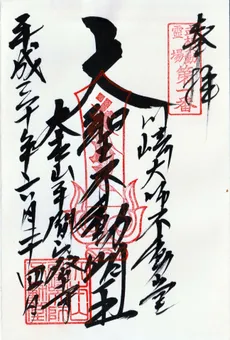 奉拝
霊場
第一番
川崎大師不動堂
大聖不動明王
大本山平間寺
平成三十年六月二十四日